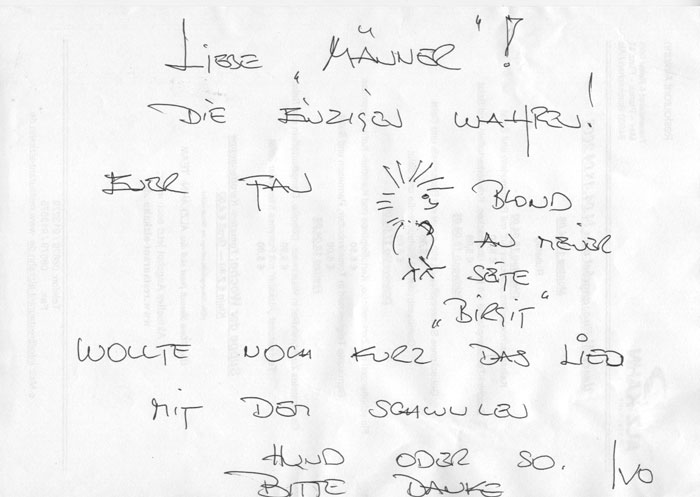 LIEBE "MÄNNER"!
DIE EINZIGEN WAHREN!
EUER FAN
BLOND
AN MEINER
SEITE
„BIRGIT"
WOLLTE NOCH KURZ DAS LIED
MIT DEM SCHWULEN
HUND ODER SO.
BITTE DANKE
IVO